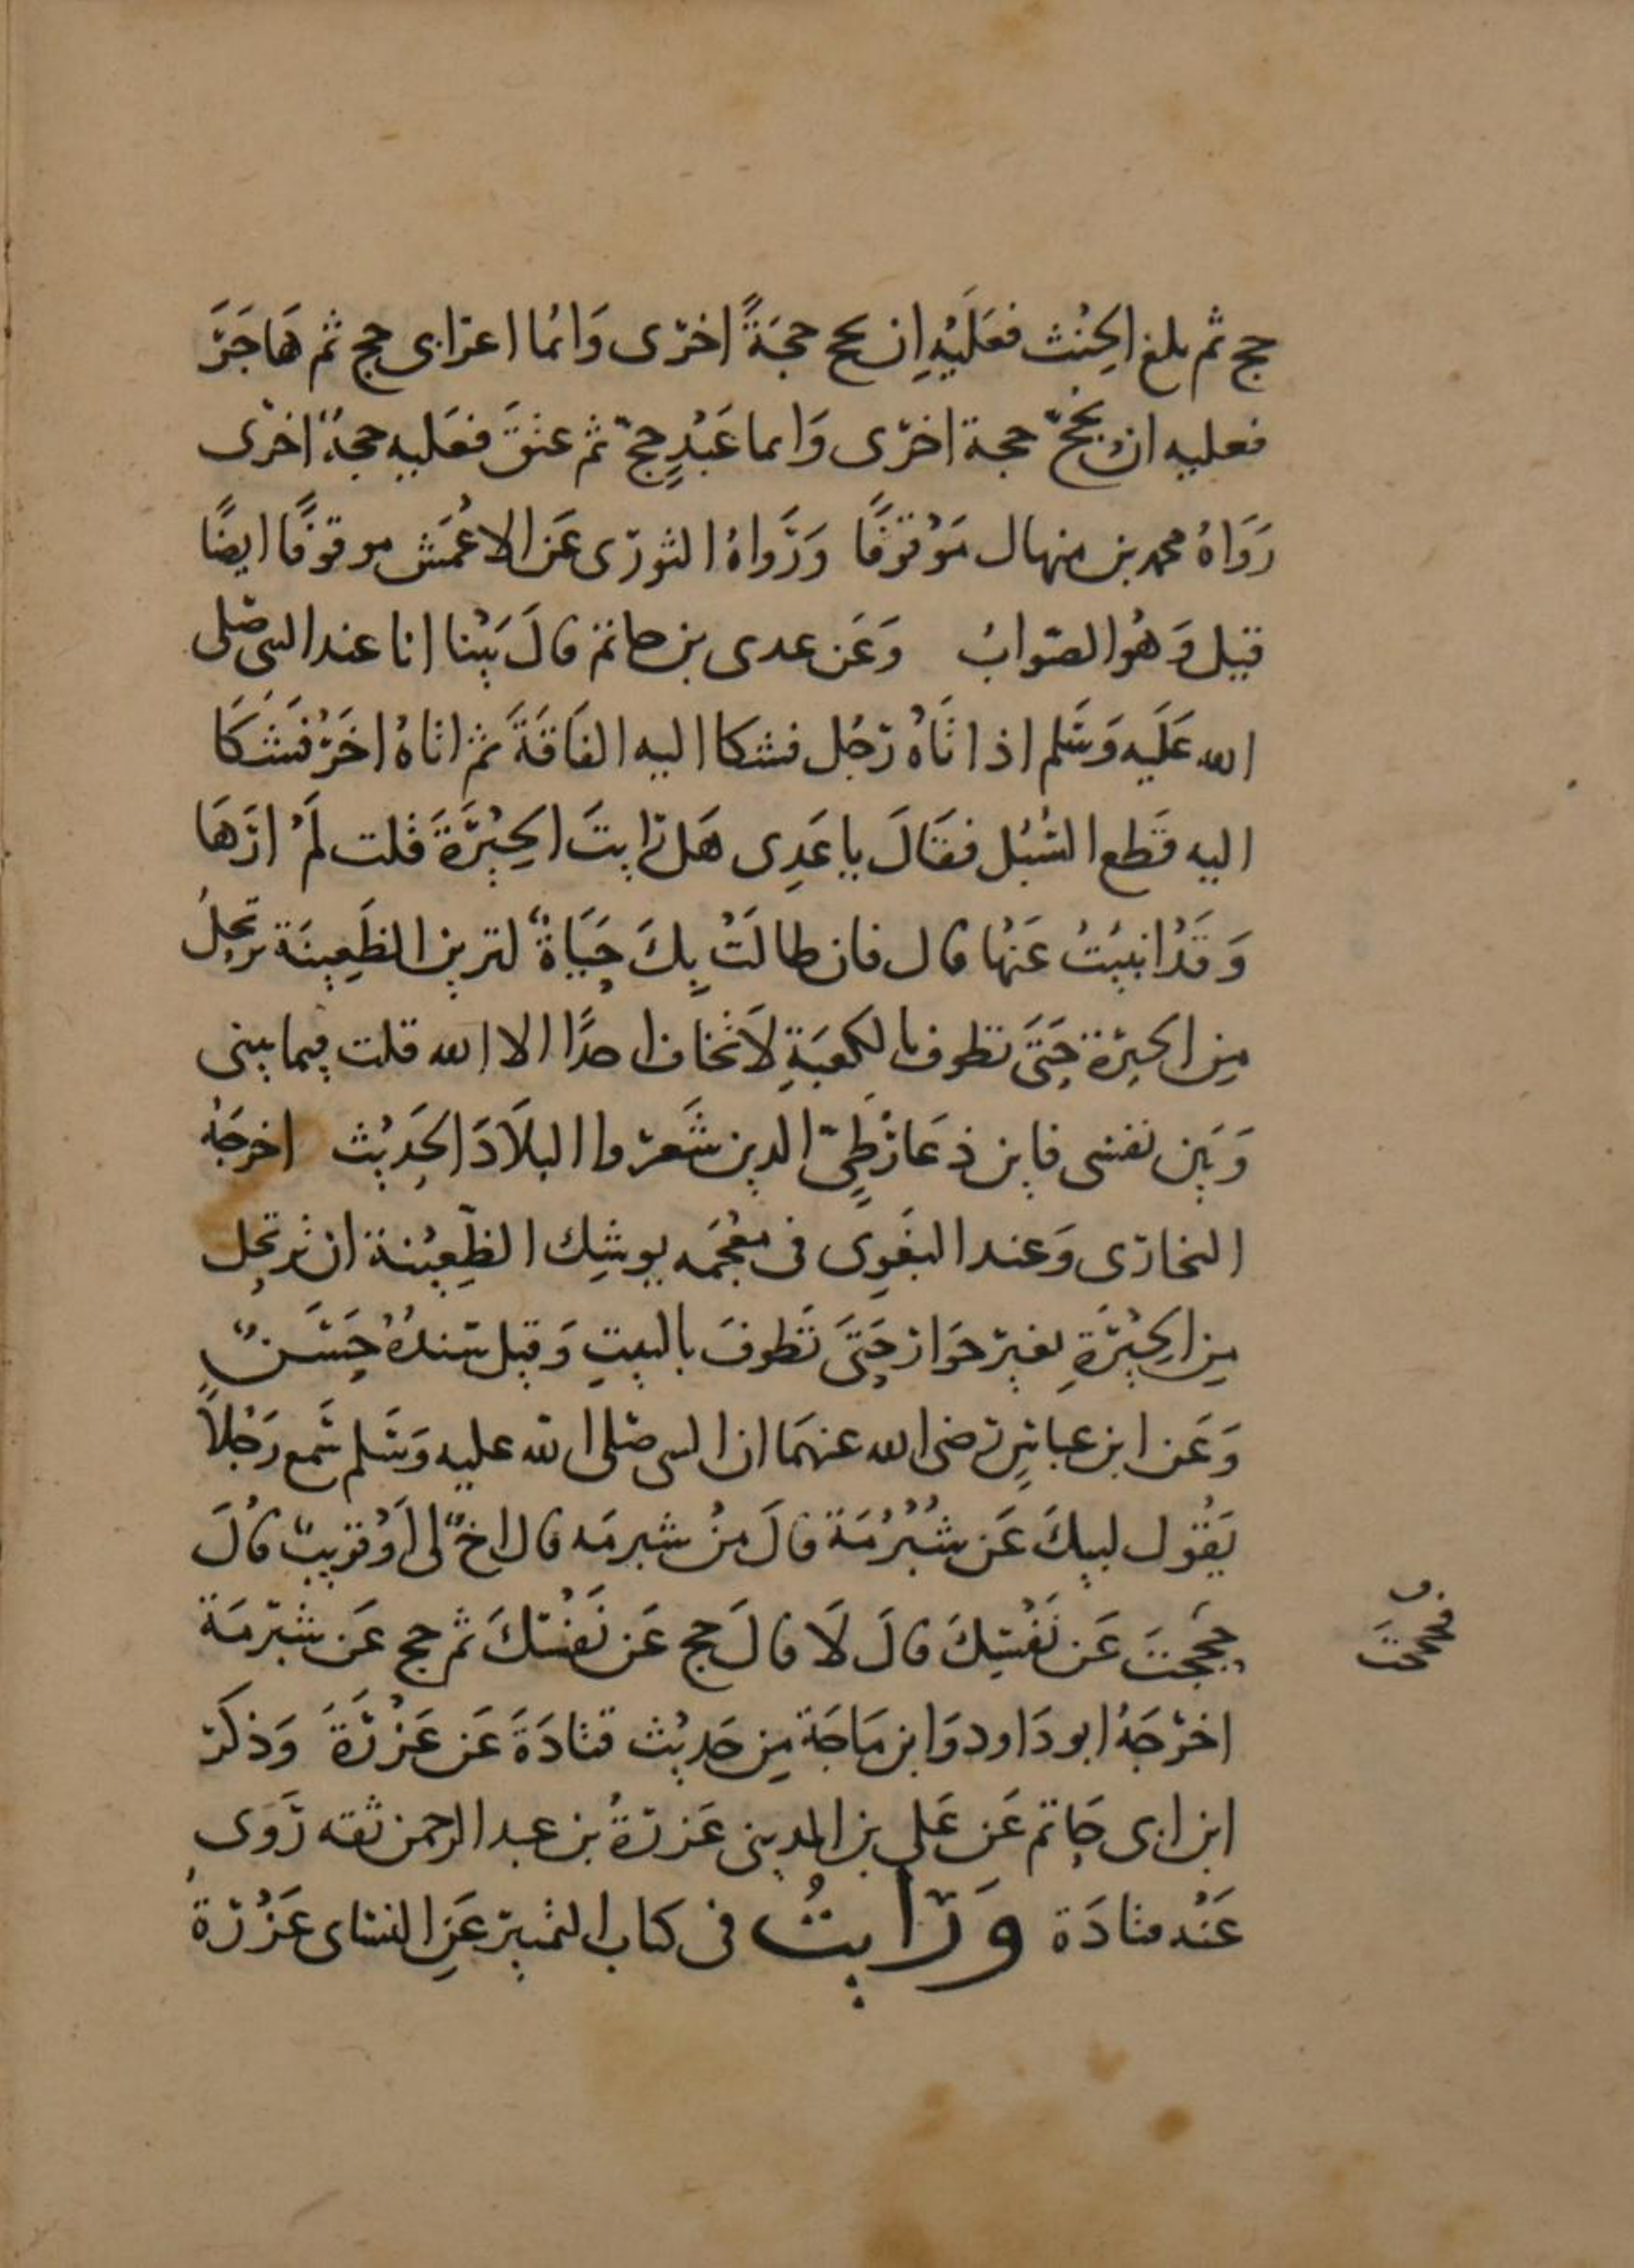 حج ثم بلغ الحِنْث فعَلَيْهِ ان يحج حجَةً اخرى وَائما اعرابى حج ثم هَاجَرَ
فعليه ان يحجّ حجة اخرى وَايما عَبْدٍ حجّ ثم عتقَ فعَليه حجةٌ اخرى
رَوَاهُ محمد بن منهال مَوْقوفًا وَرَوَاهُ الثورى عَن الاعْمَش موقوفًا ايضًا
قيل وَهُوَ الصّوابُ وَعَن عدى بن حاتم قالَ بَيْنا انا عند النبى صلى
الله عَلَيه وَسَلم اذ اتَاهُ رَجُل فشكا اليه الفَاقَةَ ثم اتاهُ اخَرُ فَشَكَا
اليه قَطع السُبُل فقَالَ يا عَدِى هَل رَايتَ الحِيْرَةَ قلت لَمْ ارَهَا
وَقَدْ انبيْتُ عَنْها قال فان طالَتْ بِكَ حَيَاةٌ لترين الظَعِينَة ترتحِلُ
مِن الحيرَة حَتىَ تطوف بالكعبَةِ لاَ تخاف احدًا الا الله قلت فيما بينى
وَبَين نفسى فاين ذعَار طيّ الدين سَعّروا البلاَدَ الحَدِيْث اخرجَهُ
البخارى وَعند البغَوِى فى معْجَمه يوشِك الظّعِيْنة ان ترتحِل
مِن الحِيْرَةِ بغير جوَار حَتىَ تَطوفَ بالبيتِ وَقيل سندهُ حَسَنٌ
وَعَن ابن عباسٍ رضى الله عنهمَا ان النبى صلى الله عليه وَسَلم سَمع رَجُلاً
يَقُول لبيكَ عَن شُبْرُمَة قالَ منْ شبرمَه قال اخٌ لى اَوْ قريبٌ قالَ
حججتَ عَن نَفْسِكَ قالَ لاَ قالَ حج عَن نَفْسكَ ثم حج عَن شبرمَة
فحججتَ
اخرَجَهُ ابو دَاود وَابن مَاجَة مِن حَديْث قتادَةَ عَن عَزْرَةَ وَذكَرَ
ابن ابى حَاتم عَن عَلي بن المدينى عَزرَةُ بن عبد الرحمن ثقه رَوَى
عَنْه قتادَة وَرَايتُ فى كتاب التمييز عَنِ النساى عَزْرَة